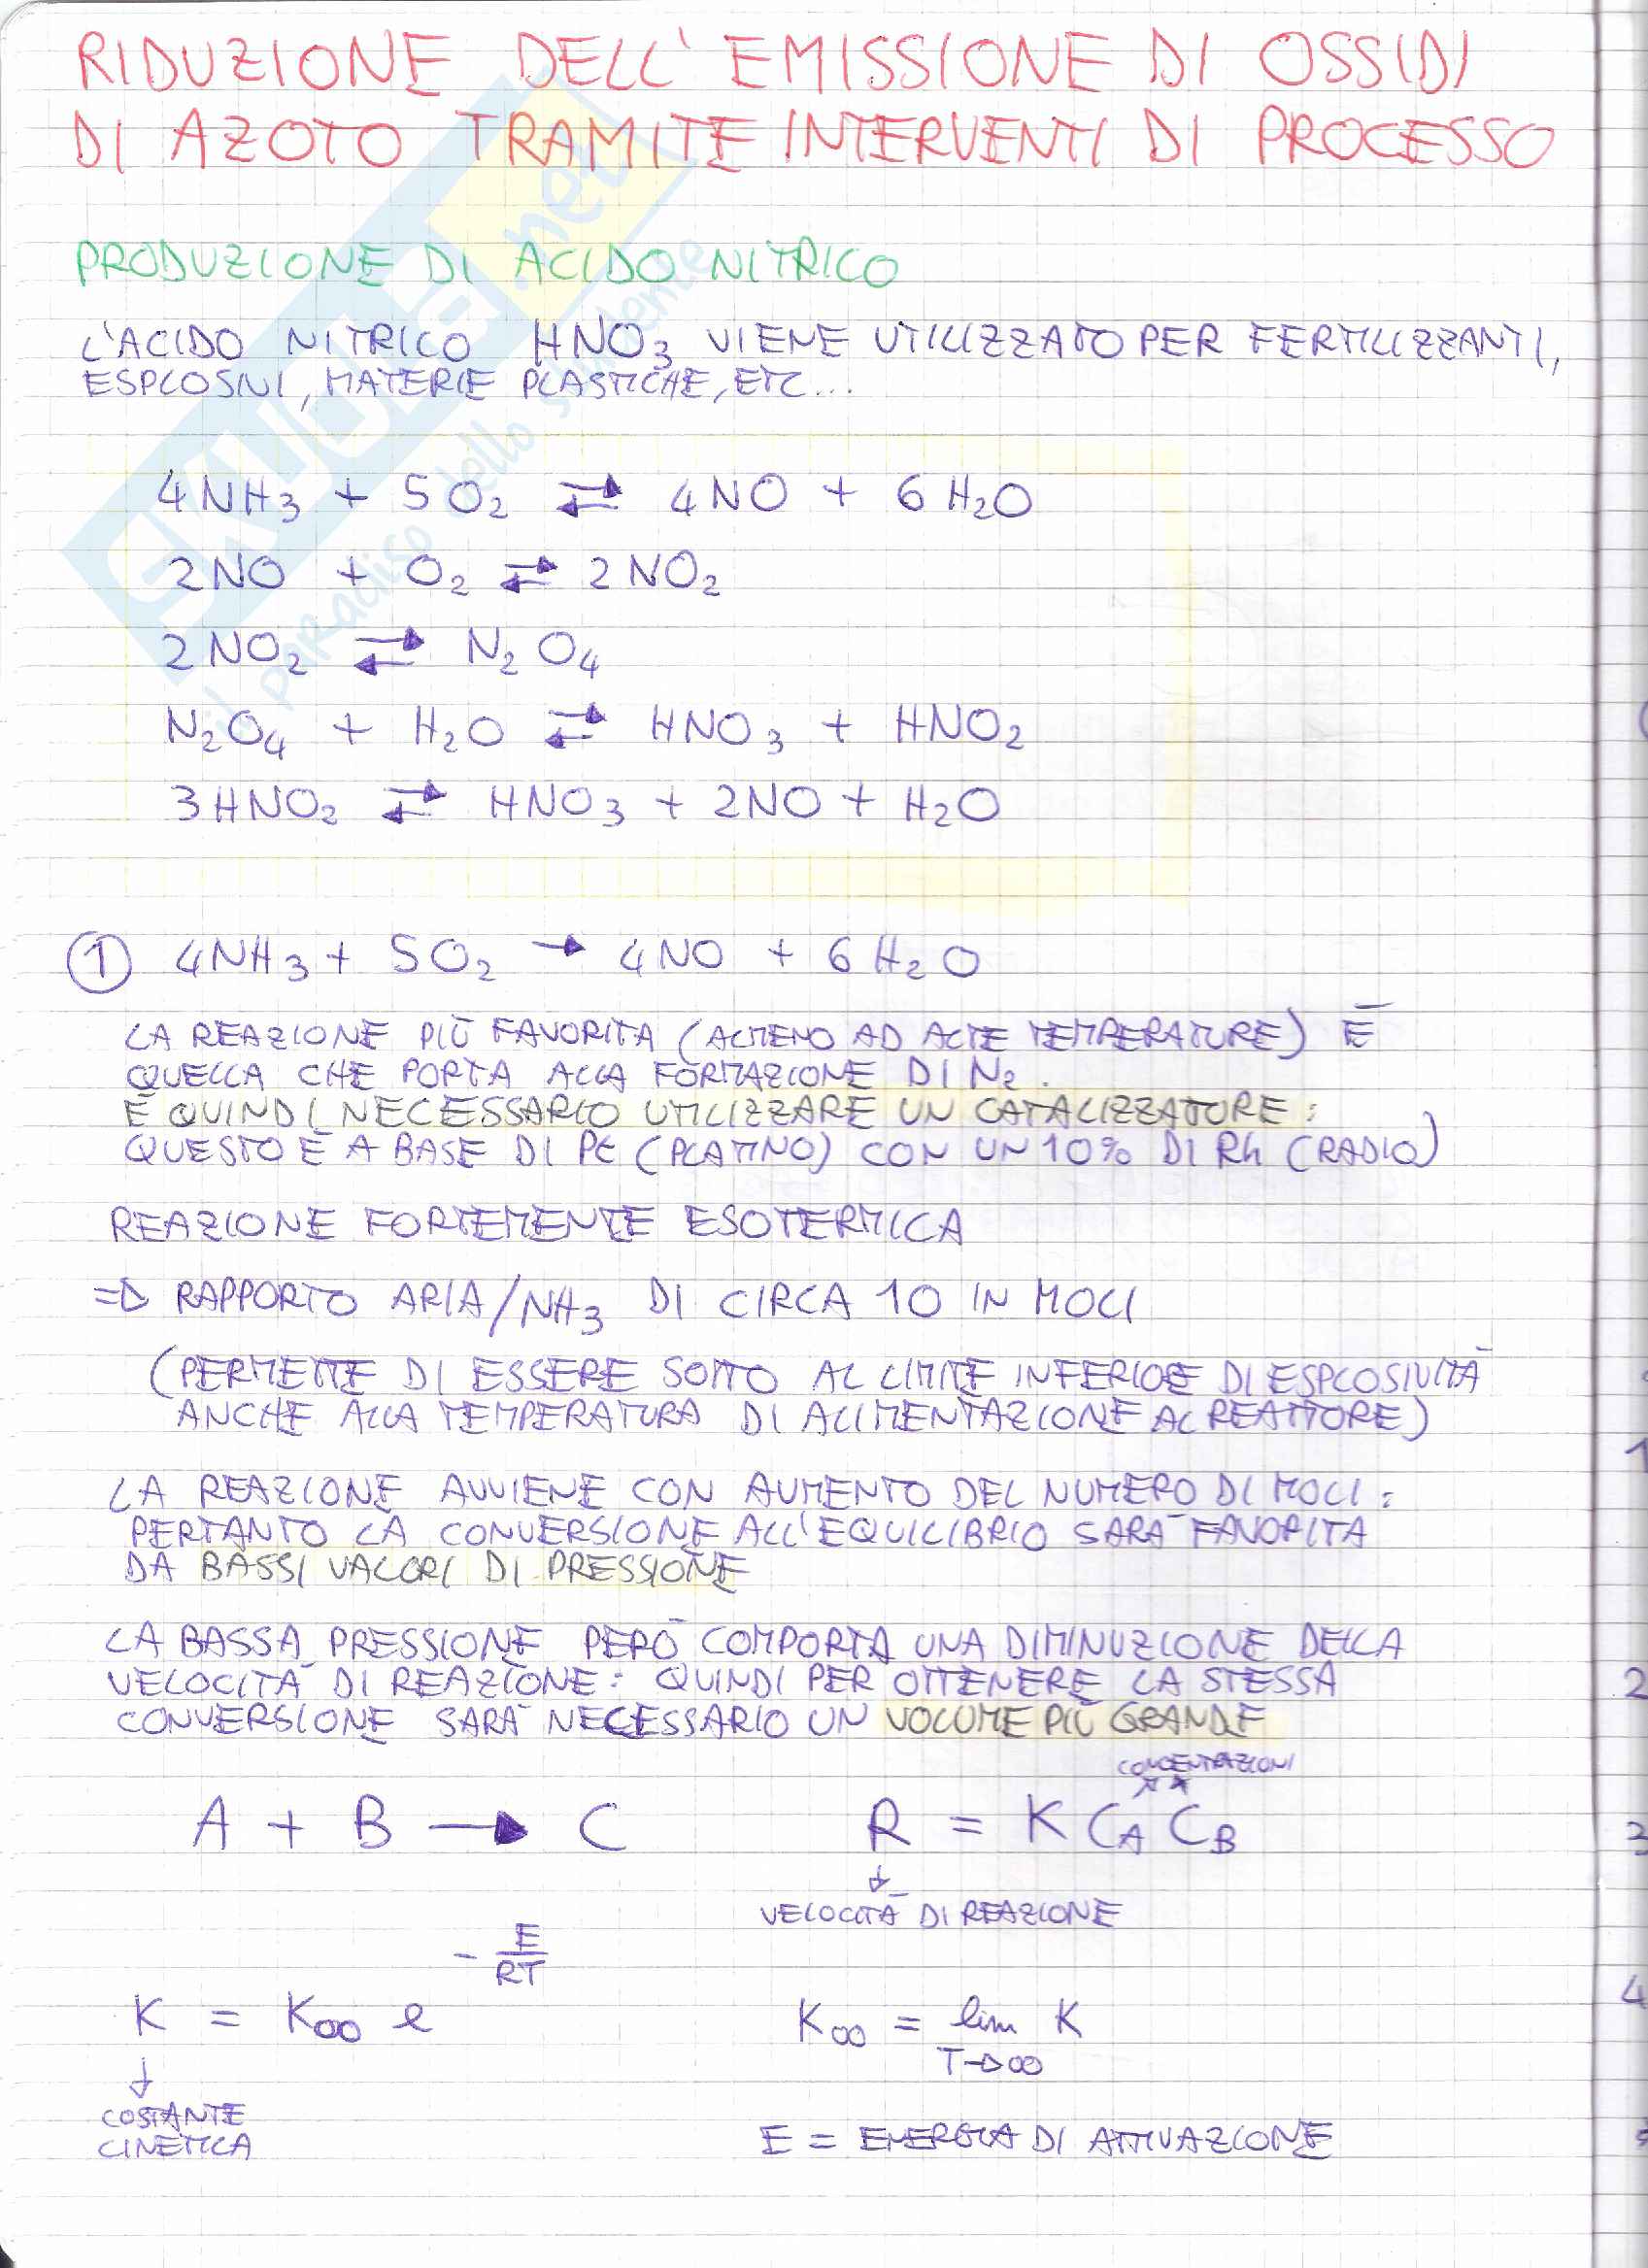 RIDUZIONE DELL'EMISSIONE DI OSSIDI
DI AZOTO TRAMITE INTERVENTI DI PROCESSO
PRODUZIONE DI ACIDO NITRICO
L'ACIDO NITRICO HNO₃ VIENE UTILIZZATO PER FERTILIZZANTI,
ESPLOSIVI, MATERIE PLASTICHE, ETC...
4NH₃ + 5O₂ ⇄ 4NO + 6H₂O
2NO + O₂ ⇄ 2NO₂
2NO₂ ⇄ N₂O₄
N₂O₄ + H₂O ⇄ HNO₃ + HNO₂
3HNO₂ ⇄ HNO₃ + 2NO + H₂O
① 4NH₃ + 5O₂ → 4NO + 6H₂O
LA REAZIONE PIÙ FAVORITA (ALMENO AD ALTE TEMPERATURE) È
QUELLA CHE PORTA ALLA FORMAZIONE DI N₂.
È QUINDI NECESSARIO UTILIZZARE UN CATALIZZATORE:
QUESTO È A BASE DI Pt (PLATINO) CON UN 10% DI Rh (RADIO)
REAZIONE FORTEMENTE ESOTERMICA
⇒ RAPPORTO ARIA/NH₃ DI CIRCA 10 IN MOLI
(PERMETTE DI ESSERE SOTTO AL LIMITE INFERIOE DI ESPLOSIVITÀ
ANCHE ALLA TEMPERATURA DI ALIMENTAZIONE AL REATTORE)
LA REAZIONE AVVIENE CON AUMENTO DEL NUMERO DI MOLI:
PERTANTO LA CONVERSIONE ALL'EQUILIBRIO SARÀ FAVORITA
DA BASSI VALORI DI PRESSIONE
LA BASSA PRESSIONE PERÒ COMPORTA UNA DIMINUZIONE DELLA
VELOCITÀ DI REAZIONE: QUINDI PER OTTENERE LA STESSA
CONVERSIONE SARÀ NECESSARIO UN VOLUME PIÙ GRANDE
CONCENTRAZIONI
A + B → C R = K C_A C_B
VELOCITÀ DI REAZIONE
K = K∞ e^(-E/RT) K∞ = lim K
T→∞
COSTANTE
CINETICA
E = ENERGIA DI ATTIVAZIONE
SKUOLA.net
il paradiso dello studente
1
2
3
4